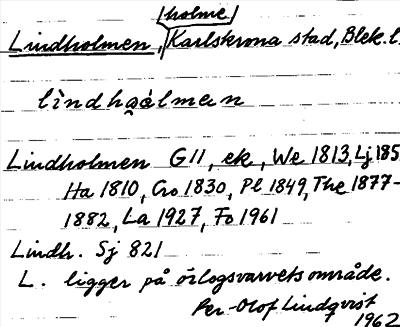 holme
Lindholmen, Karlskrona stad, Blek.l.
Lindholmen G11, ek, We 1813, Lj 185
Ha 1810, Cro 1830, Pl 1849, The 1877-
1882, La 1927, Fo 1961
Lindh. Sj 821
L. ligger på örlogsvarvets område.
Per-Olof Lindqvist
1962